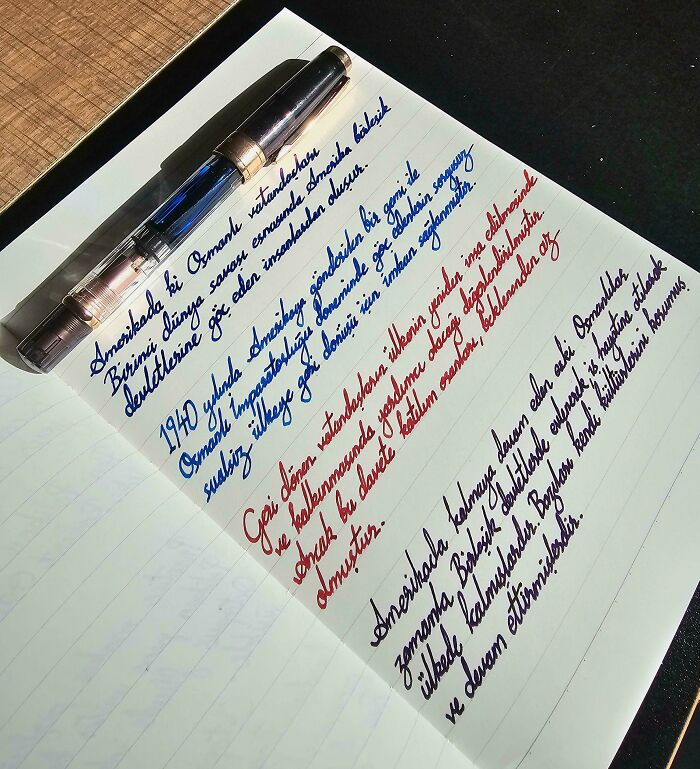 Amerikada ki Osmanlı vatandaşları
Birinci dünya savaşı esnasında Amerika birleşik
devletlerine göç eden insanlardan oluşur.
1940 yılında Amerikaya gönderilen bir gemi ile
Osmanlı İmparatorluğu döneminde göç edenlerin sorgusuz
sualsiz ülkeye geri dönüşü için imkan sağlanmıştır.
Geri dönen vatandaşların ülkenin yeniden inşa edilmesinde
ve kalkınmasında yardımcı olacağı değerlendirilmiştir.
Ancak bu davete katılım oranları, beklenenden az
olmuştur.
Amerikada kalmaya devam eden eski Osmanlılar
zamanla Birleşik devletlerde evlenerek iş hayatına atılarak
ülkede kalmışlardır. Bazıları kendi kültürlerini korumuş
ve devam ettirmişlerdir.